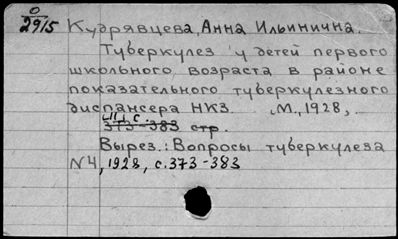 О
2915
Кудрявцева, Анна Ильинична.
Туберкулез у детей первого
школьного возраста в районе
показательного туберкулезного
диспансера НКЗ. М., 1928,
373-383 стр.
Вырез.: Вопросы туберкулеза
№4, 1928, с. 373-383